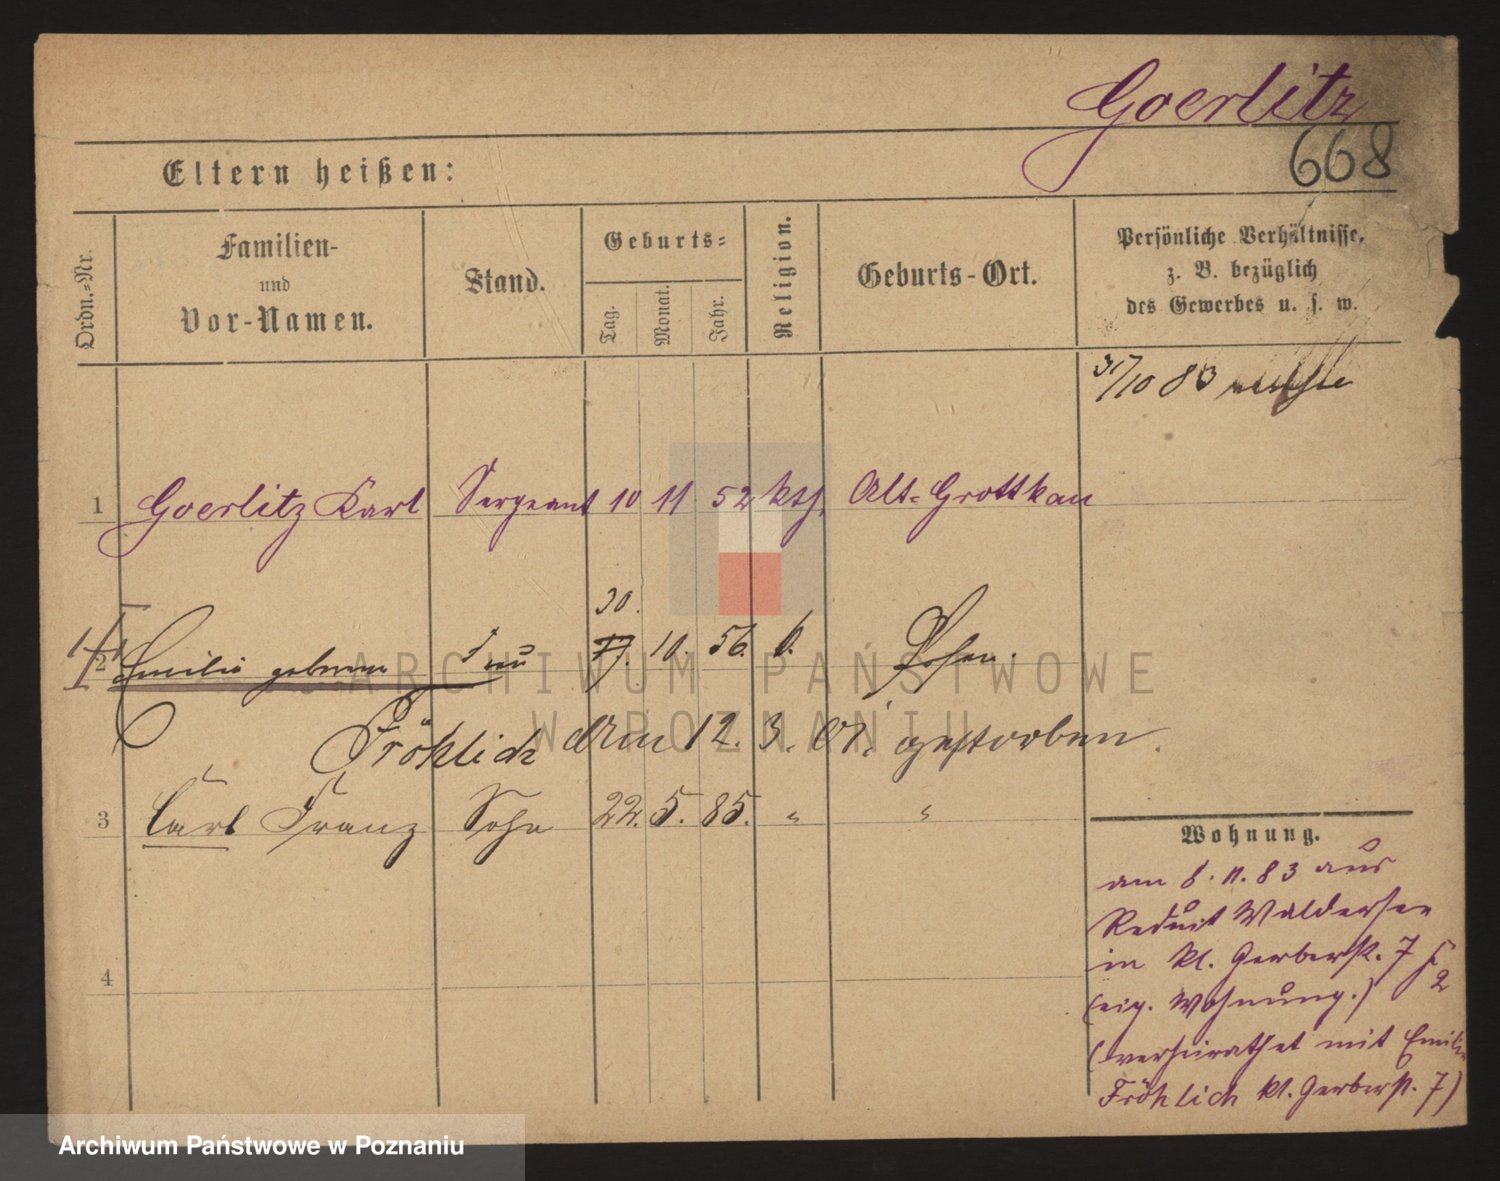 Goerlitz
668
Eltern heißen:
Ordn.-Nr.
Familien-
und
Vor-Namen.
Stand.
Geburts-
Tag.
Monat.
Jahr.
Religion.
Geburts-Ort.
Persönliche Verhältnisse,
z. B. bezüglich
des Gewerbes u. s. w.
31/10 83
1 Goerlitz Karl Sergeant 10 11 52 kth. Alt-Grottkau
30.
2 Emilie geborene Frau 10. 56. Posen.
Fröhlich Am 12. 3. 07. gestorben.
3 Carl Franz Sohn 22. 5. 85. " "
4
Wohnung.
am 8. 11. 83 aus
Reduit Waldersee
in kl. Gerberstr. 7
2
(eig. Wohnung.)
(verheirathet mit Emilie
Fröhlich kl. Gerberstr. 7)
ARCHIWUM PAŃSTWOWE
W POZNANIU
Archiwum Państwowe w Poznaniu